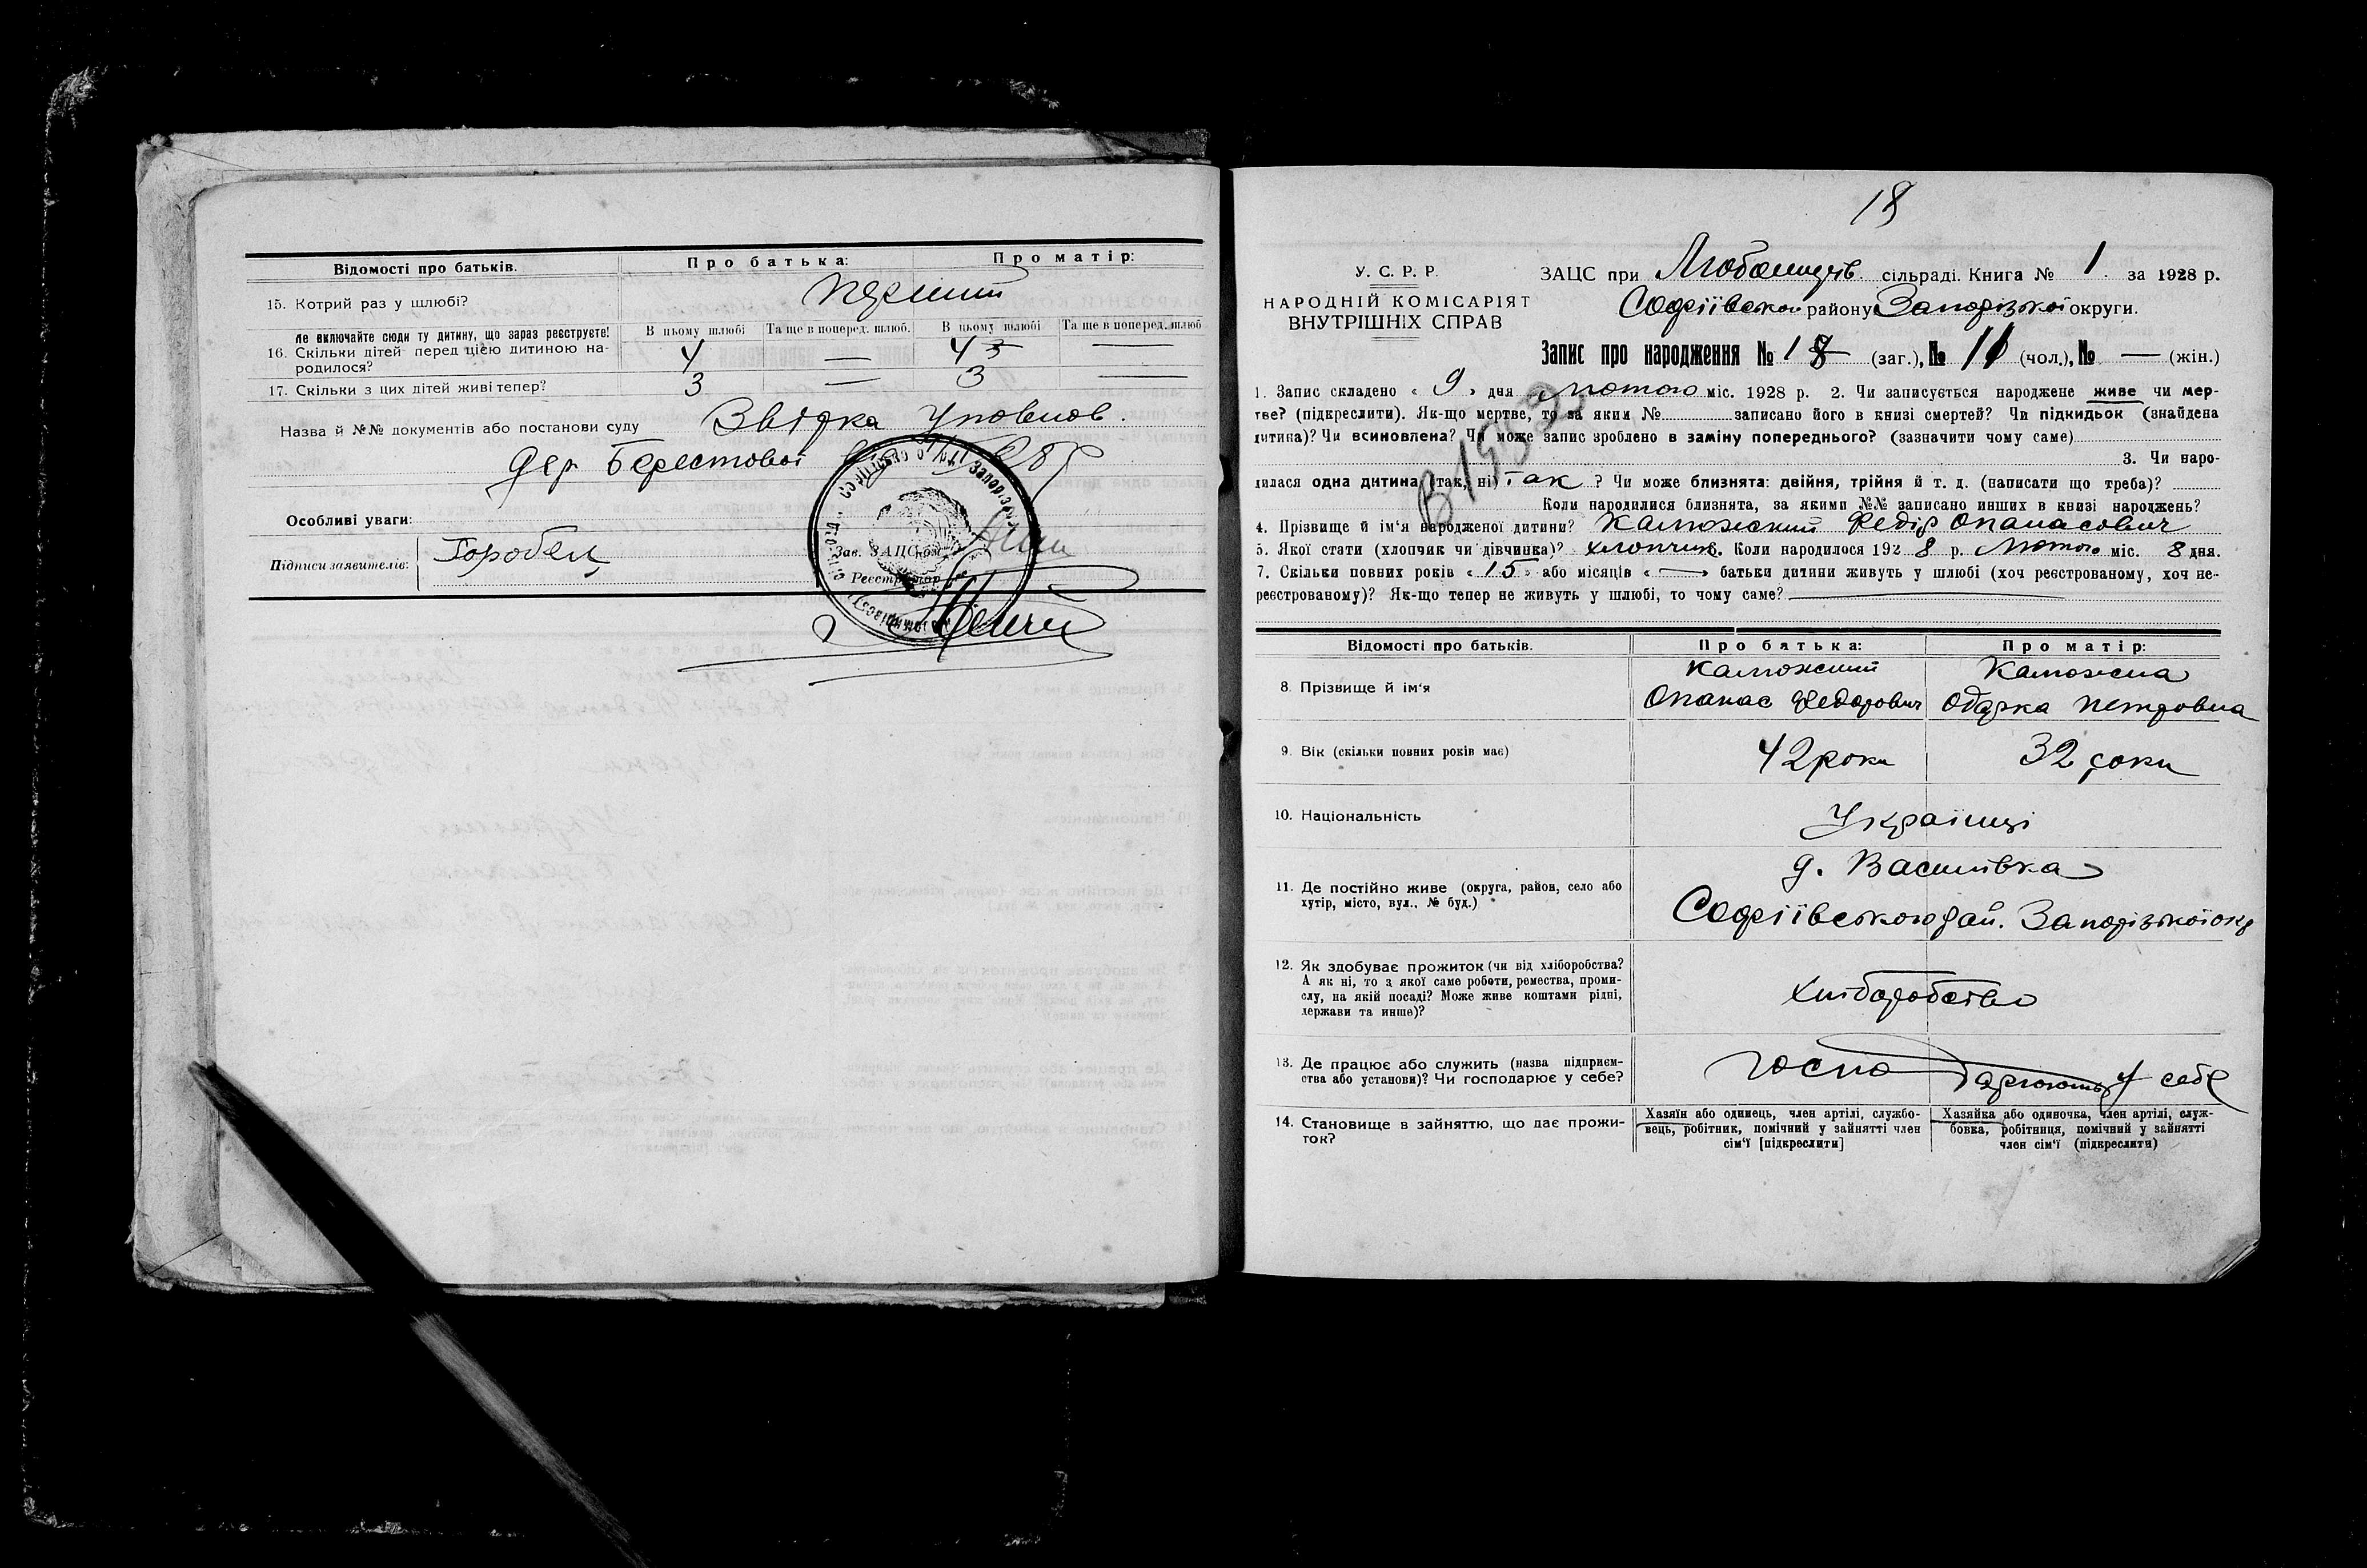 Відомості про батьків.
Про батька:
Про матір:
15. Котрий раз у шлюбі?
перший
Не включайте сюди ту дитину, що зараз реєструєте!
В цьому шлюбі
Та ще в поперед. шлюб.
В цьому шлюбі
Та ще в поперед. шлюб
16. Скільки дітей перед цією дитиною на-
родилося?
4 — 4 —
17. Скільки з цих дітей живі тепер?
3 — 3 —
Назва й №№ документів або постанови суду Звідка Уповнов.
дер Берестової
Особливі уваги:
Підписи заявителів: Горобец
Зав. ЗАЦСом
Реєстратор
18
У. С. Р. Р.
НАРОДНІЙ КОМІСАРІЯТ
ВНУТРІШНІХ СПРАВ
ЗАЦС при сільраді. Книга № 1 за 1928 р.
Софіївськой району Запорізької округи.
Запис про народження № 18 (заг.), № 11 (чол.), № — (жін.)
1. Запис складено « 9 » дня лютого міс. 1928 р. 2. Чи записується народжене живе чи мер-
тве? (підкреслити). Як-що мертве, то за яким № записано його в книзі смертей? Чи підкидьок (знайдена
дитина)? Чи всиновлена? Чи може запис зроблено в заміну попереднього? (зазначити чому саме)
3. Чи наро-
дилася одна дитина (так, ні) так ? Чи може близнята: двійня, трійня й т. д. (написати що треба)?
Коли народилися близнята, за якими №№ записано инших в книзі народжень?
4. Прізвище й ім'я народженої дитини? Калюжний Федір Опанасович
5. Якої стати (хлопчик чи дівчинка)? хлопчик 6. Коли народилося 192 8 р. Лютого міс. 8 дня.
7. Скільки повних років « 15 » або місяців « — » батьки дитини живуть у шлюбі (хоч реєстрованому, хоч не-
реєстрованому)? Як-що тепер не живуть у шлюбі, то чому саме? —
Відомості про батьків.
Про батька:
Про матір:
8. Прізвище й ім'я
Калюжний
Опанас Федорович
Калюжна
Одарка Петровна
9. Вік (скільки повних років має)
42 роки
32 роки
10. Національність
Українці
11. Де постійно живе (округа, район, село або
хутір, місто, вул., № буд.)
д. Василівка
Софіївського рай. Запорізької окр
12. Як здобуває прожиток (чи від хліборобства?
А як ні, то з якої саме роботи, ремества, проми-
слу, на якій посаді? Може живе коштами рідні,
держави та инше)?
Хліборобство
13. Де працює або служить (назва підприєм-
ства або установи)? Чи господарює у себе?
господарюють у себе
14. Становище в зайняттю, що дає прожи-
ток?
Хазяїн або одинець, член артілі, службо-
вець, робітник, помічний у зайнятті член
сім'ї [підкреслити]
Хазяйка або одиночка, член артілі, служ-
бовка, робітниця, помічний у зайнятті
член сім'ї (підкреслити)